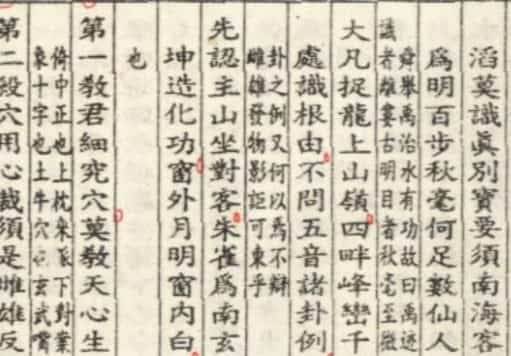 滔莫識眞別寶要須南海客
爲明百步秋毫何足數仙人
舜舉禹治水有功故曰禹迹
識者離婁古明目者秋毫至微
大凡捉龍上山嶺四畔峰巒千
處識根由不問五音諸卦例
卦之例又何以爲不辯
雌雄發物影詎可東乎
先認主山坐對客朱雀爲南玄
坤造化功窗外月明窗内白
也
第一敎君細究穴莫敎天心生
倚中正也上枕來脈下對案
象十字也土牛穴名玄武嘴
第二段穴用心裁須是雌雄反